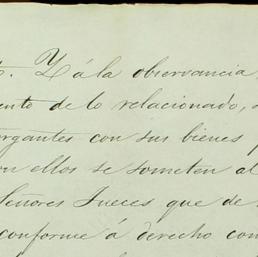 Y á la observancia
ento de lo relacionado,
rgantes con sus bienes
on ellos se someten al
Señores Jueces que de
conforme á derecho con